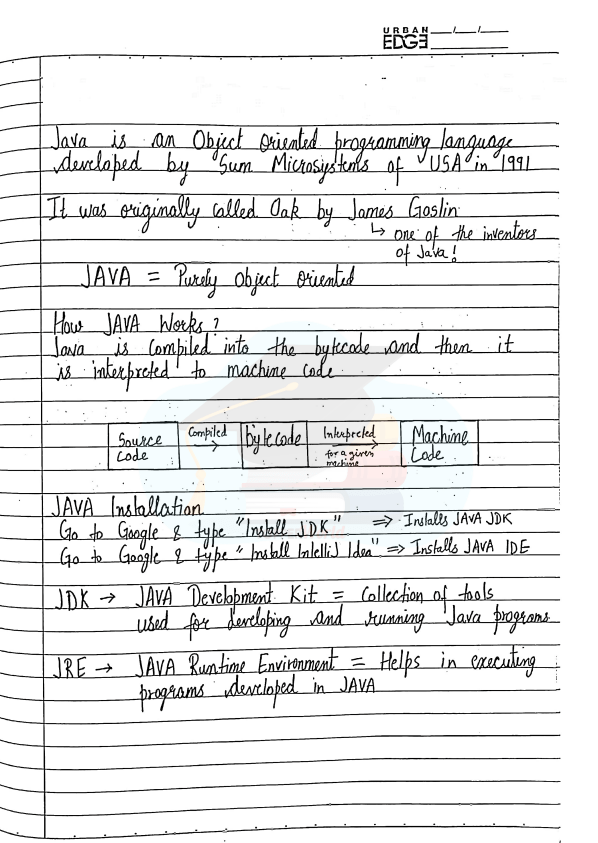 URBAN
EDGE
Java is an Object Oriented programming language
developed by Sum Microsystems of USA in 1991
It was originally called Oak by James Goslin
↳ one of the inventors
of Java!
JAVA = Purely Object Oriented
How JAVA Works?
Java is compiled into the bytecode and then it
is interpreted to machine code.
Source Code
Compiled →
bytecode
Interpreted → for a given machine
Machine Code
JAVA Installation
Go to Google & type "Install JDK" ⇒ Installs JAVA JDK
Go to Google & type "Install IntelliJ Idea" ⇒ Installs JAVA IDE
JDK → JAVA Development Kit = Collection of tools
used for developing and running Java programs
JRE → JAVA Runtime Environment = Helps in executing
programs developed in JAVA